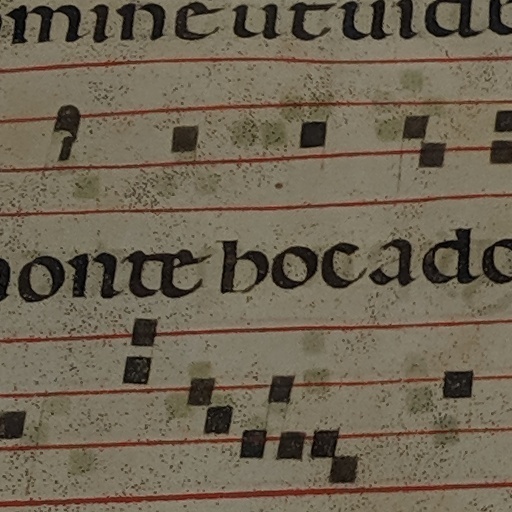 omine ut uide
monte hoc ado